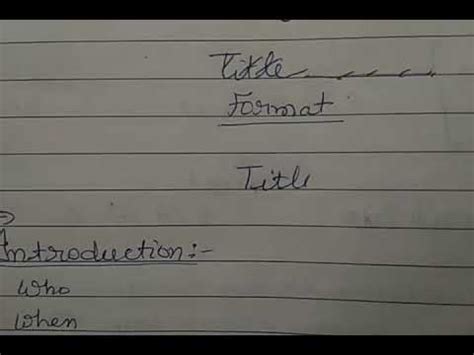 Title
Format
Title
Introduction:-
Who
When